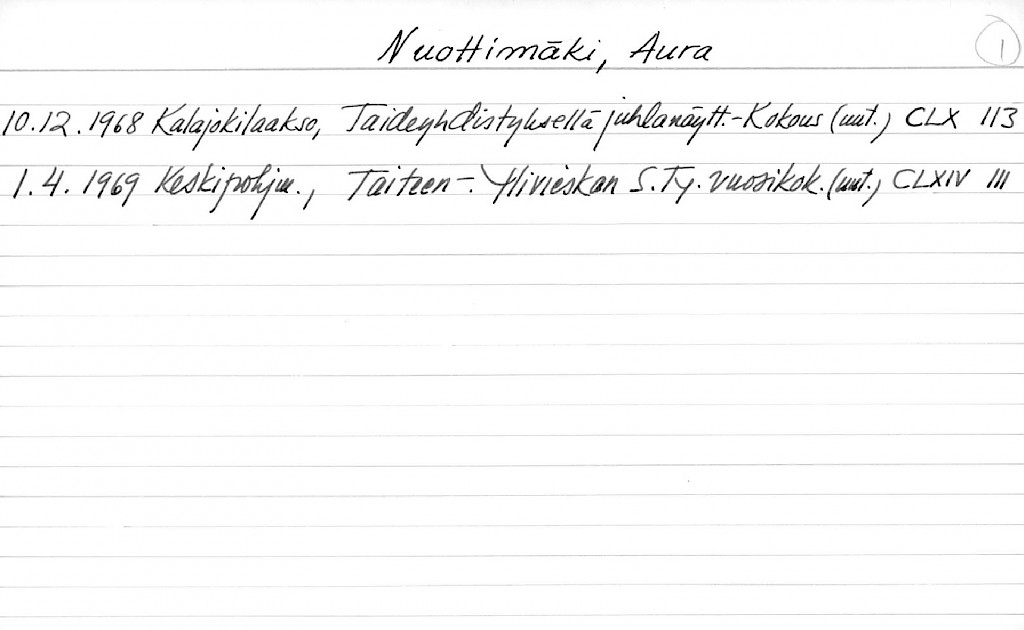 Nuottimäki, Aura
1
10.12.1968 Kalajokilaakso, Taideyhdistyksellä juhlanäytt.-Kokous (uut.) CLX 113
1.4.1969 Keskipohjm., Taiteen-. Ylivieskan S.Ty. vuosikok. (uut.) CLXIV 111